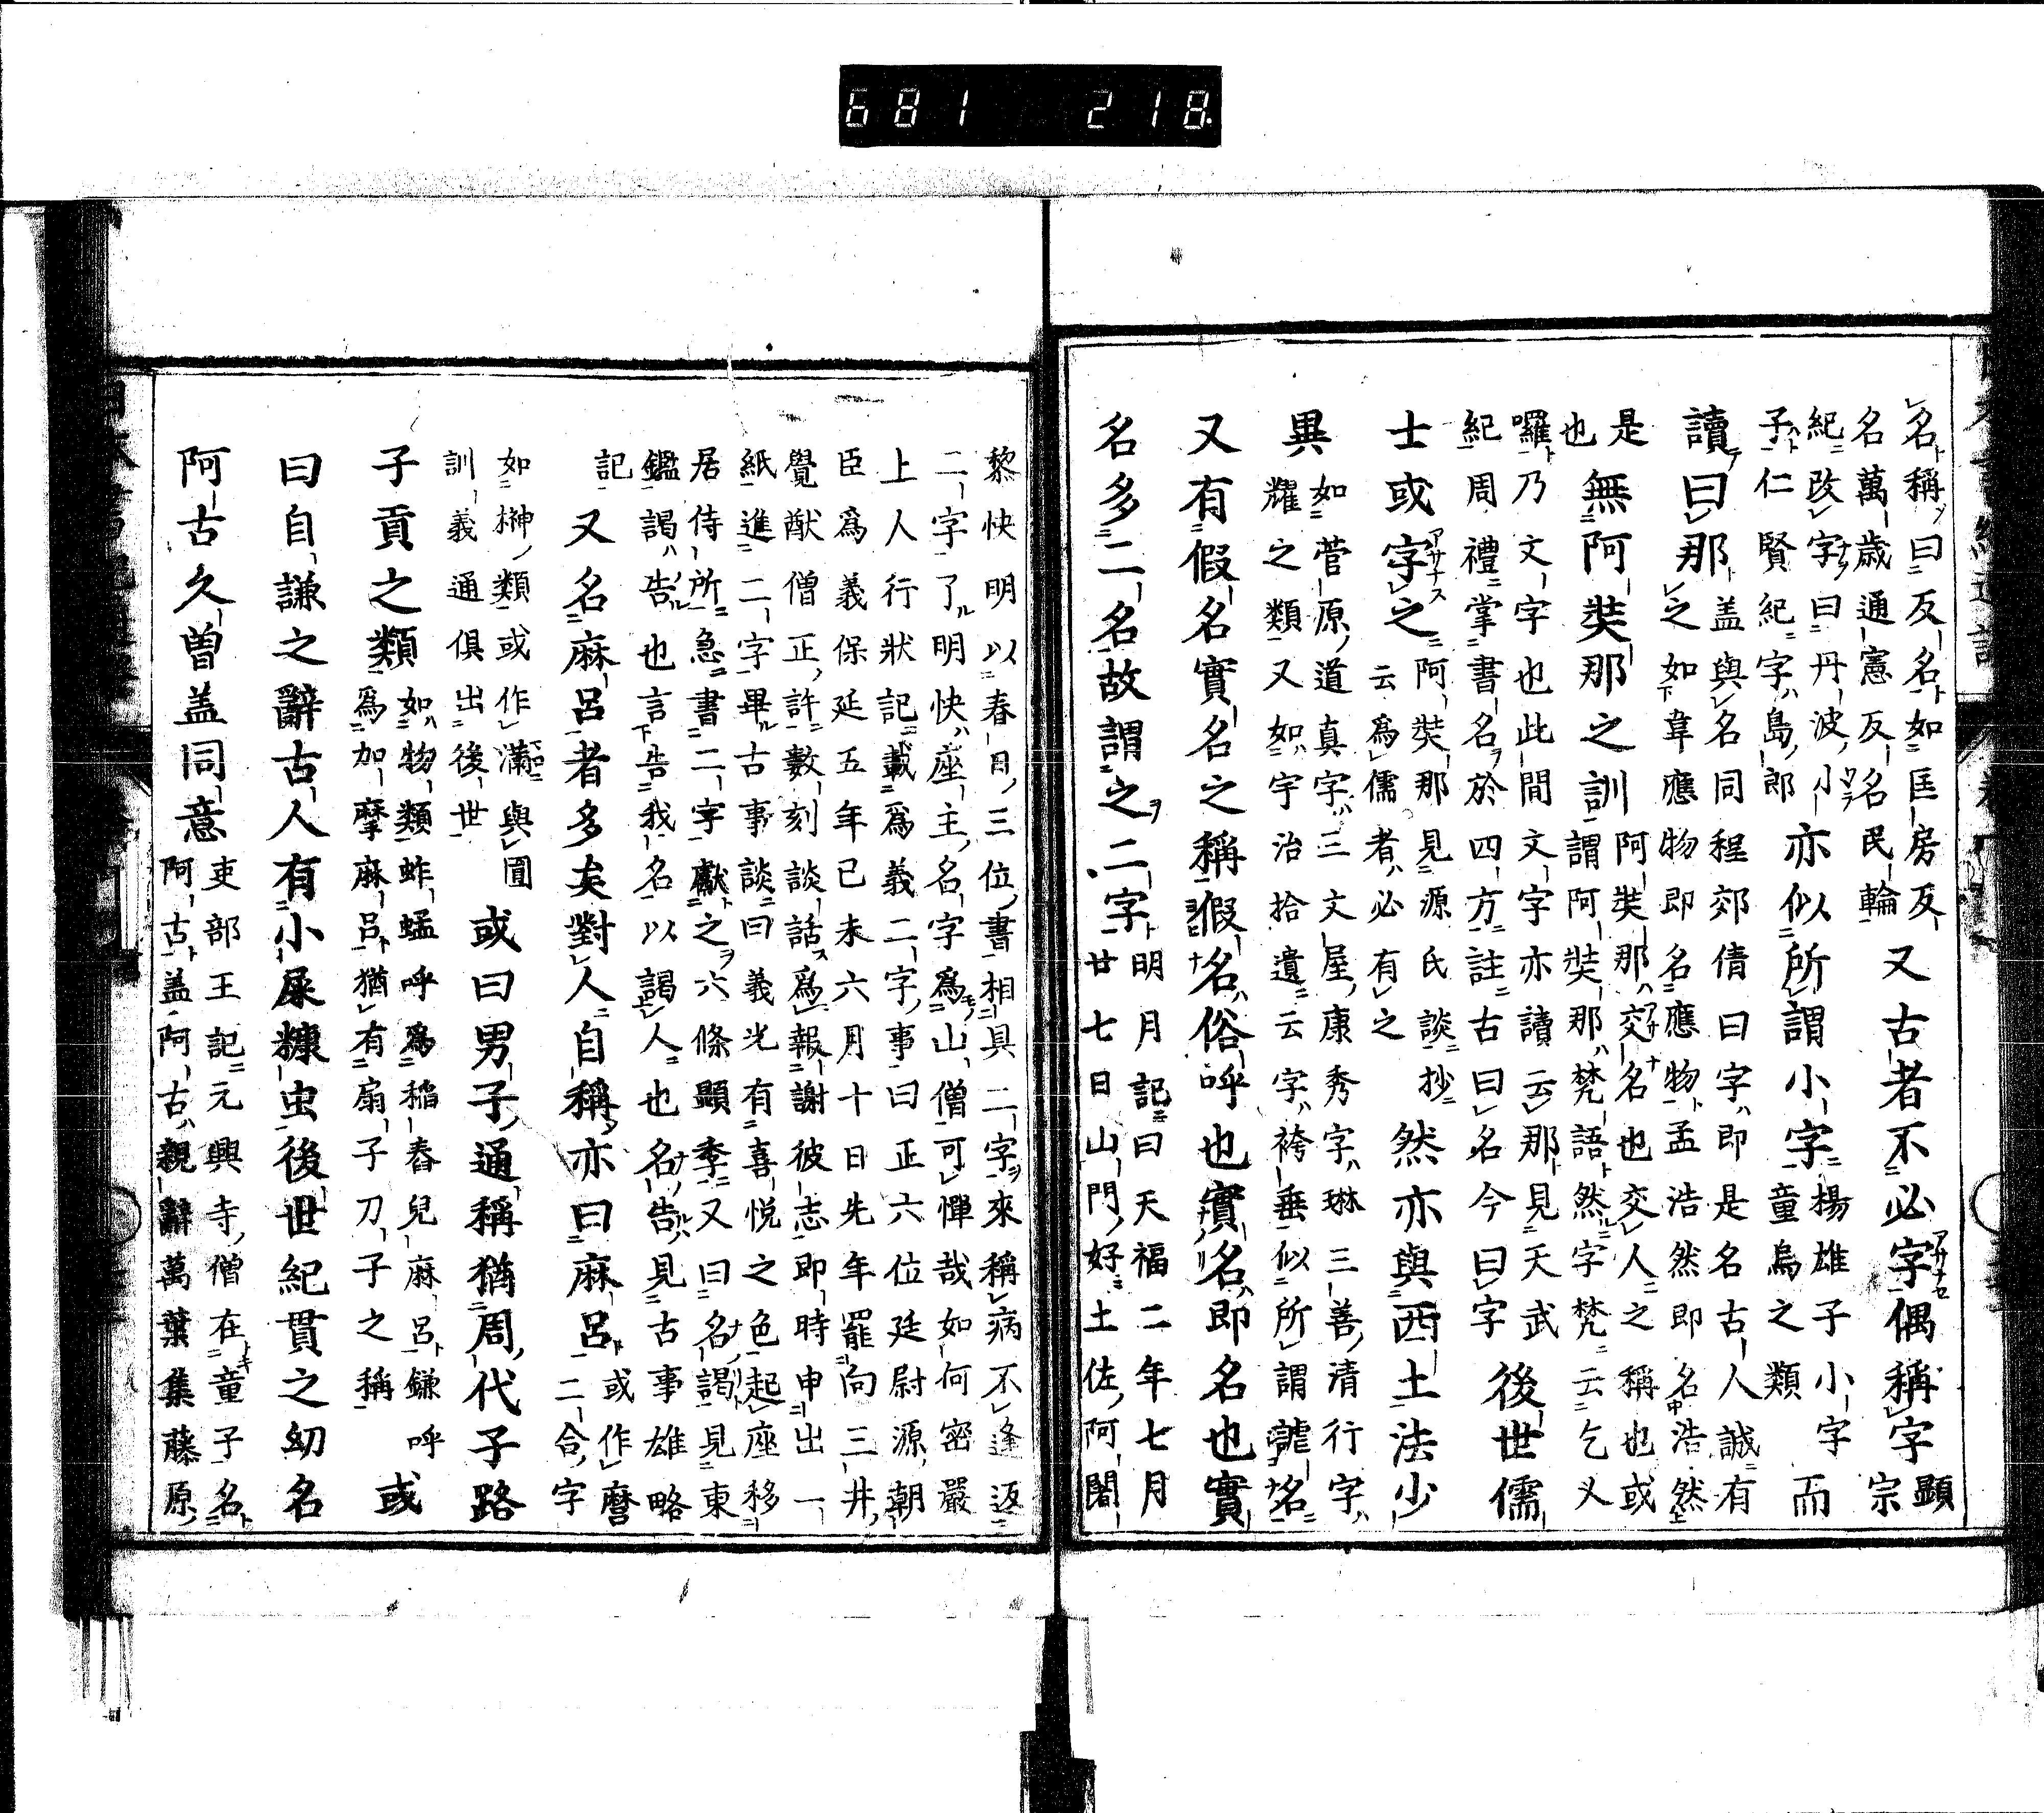 681 218.
名稱曰反名如匡房反
名萬歳通憲反名民輪
又古者不必字偶稱字
顯
宗
紀改字曰丹波小
子仁賢紀字島郎
亦似所謂小字
楊雄子小字
童烏之類
而
讀曰那
盖與名同程郊倩曰字即是名古人誠有
之如韋應物即名應物孟浩然即名浩然
是
也
無阿奘那之訓
阿奘那交名也交人之稱也或
謂阿奘那梵語然字梵云乞乂
囉乃文字也此間文字亦讀云那見天武
紀周禮掌書名於四方註古曰名今曰字
後世儒
士或字之
阿奘那見源氏談抄
云爲儒者必有之
然亦與西土法少
異
如菅原道真字三文屋康秀字琳三善清行字
耀之類又如宇治拾遺云字袴垂似所謂諢名
又有假名實名之稱假名俗呼也實名即名也實
名多二名故謂之二字
明月記曰天福二年七月
廿七日山門好土佐阿闍
黎快明以春日三位書相具二字來稱病不逢返
二字了明快座主名字爲山僧可憚哉如何密嚴
上人行狀記載爲義二字事曰正六位廷尉源朝
臣爲義保延五年已未六月十日先年罷向三井
覺猷僧正許數刻談話爲報謝彼志即時申出一
紙進二字畢古事談曰義光有喜悦之色起座移
居侍所急書二字獻之六條顯季又曰名謁見東
鑑謁告也言告我名以謁人也名告見古事雄略
記
又名麻呂者多矣對人自稱亦曰麻呂
或作麿
二合字
如榊類或作滿與圓
訓義通俱出後世
或曰男子通稱猶周代子路
子貢之類
如物類蚱蜢呼爲稲舂兒麻呂鎌呼
爲加摩麻呂猶有扇子刀子之稱
或
曰自謙之辭古人有小屎糠虫後世紀貫之幼名
阿古久曽盖同意
吏部王記元興寺僧在童子名
阿古盖阿古親辭萬葉集藤原